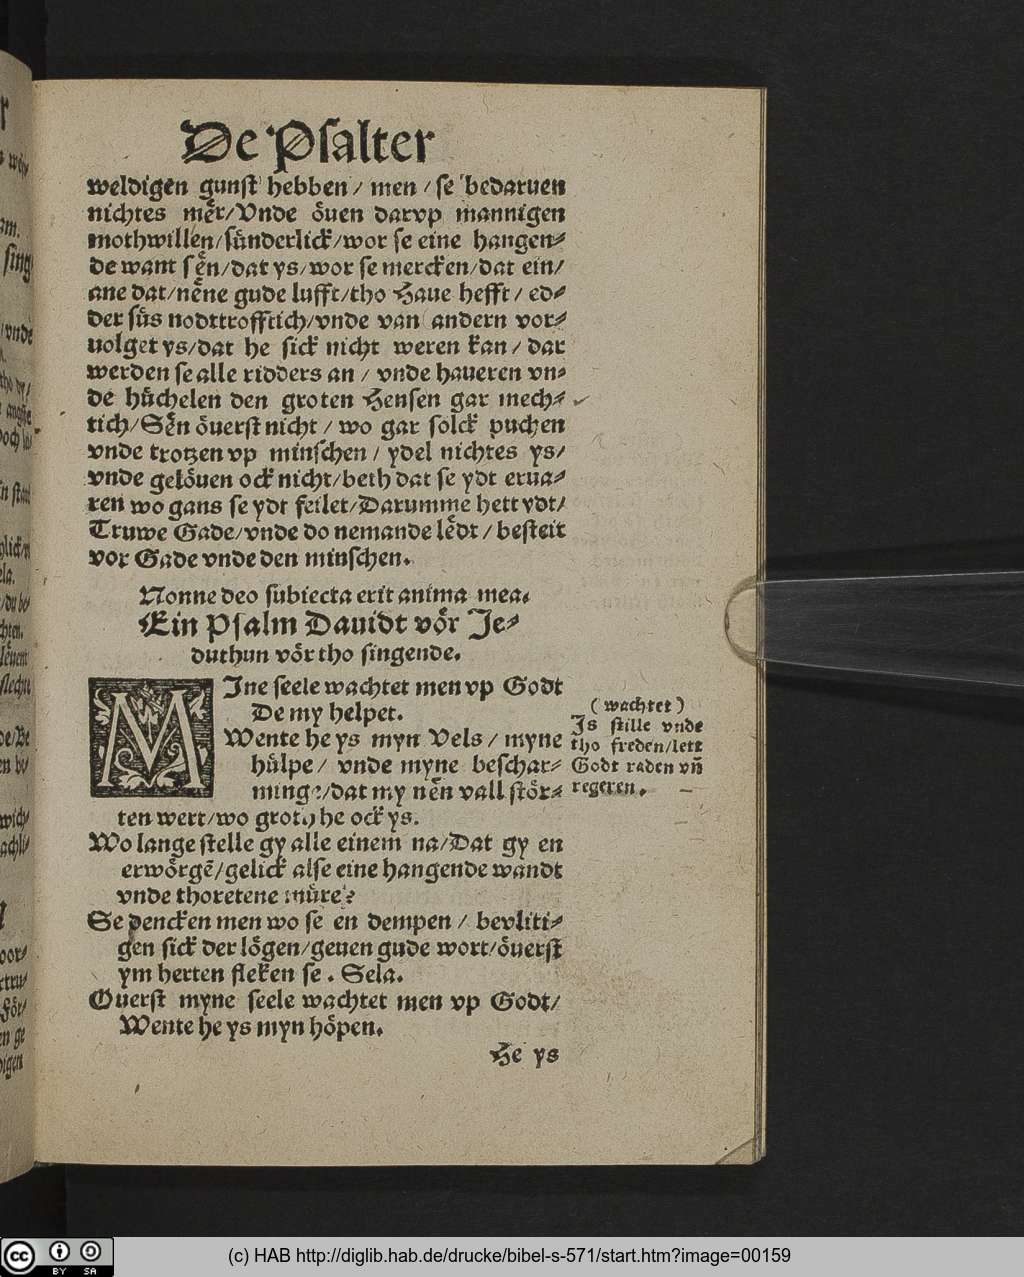 De Psalter
weldigen gunst hebben / men / se bedaruen
nichtes mēr/Vnde öuen darvp mannigen
mothwillen/sünderlick/wor se eine hangen⸗
de want sēn/dat ys/wor se mercken/dat ein/
ane dat/nēne gude lufft/tho Haue hefft / ed⸗
der süs nodttrofftich/vnde van andern vor⸗
uolget ys/dat he sick nicht weren kan / dar
werden se alle ridders an / vnde haueren vn⸗
de hüchelen den groten Hensen gar mech⸗
tich/Sēn öuerst nicht / wo gar solck puchen
vnde trotzen vp minschen / ydel nichtes ys/
vnde gelöuen ock nicht/beth dat se ydt erua⸗
ren wo gans se ydt feilet/Darumme hett ydt/
Truwe Gade/vnde do nemande lēdt / besteit
vor Gade vnde den minschen.
Nonne deo subiecta erit anima mea.
Ein Psalm Dauidt vör Je⸗
duthun vör tho singende.
MJne seele wachtet men vp Godt
De my helpet.
Wente he ys myn Vels / myne
hülpe / vnde myne beschar⸗
minge/dat my nēn vall stör⸗
ten wert/wo groth he ock ys.
(wachtet)
Js stille vnde
tho freden/lett
Godt raden vn̄
regeren.
Wo lange stelle gy alle einem na/Dat gy en
erwörgē/gelick alse eine hangende wandt
vnde thoretene müre?
Se dencken men wo se en dempen / bevliti⸗
gen sick der lögen/geuen gude wort/öuerst
ym herten fleken se. Sela.
Ouerst myne seele wachtet men vp Godt/
Wente he ys myn höpen.
He ys
(c) HAB http://diglib.hab.de/drucke/bibel-s-571/start.htm?image=00159
cc BY SA